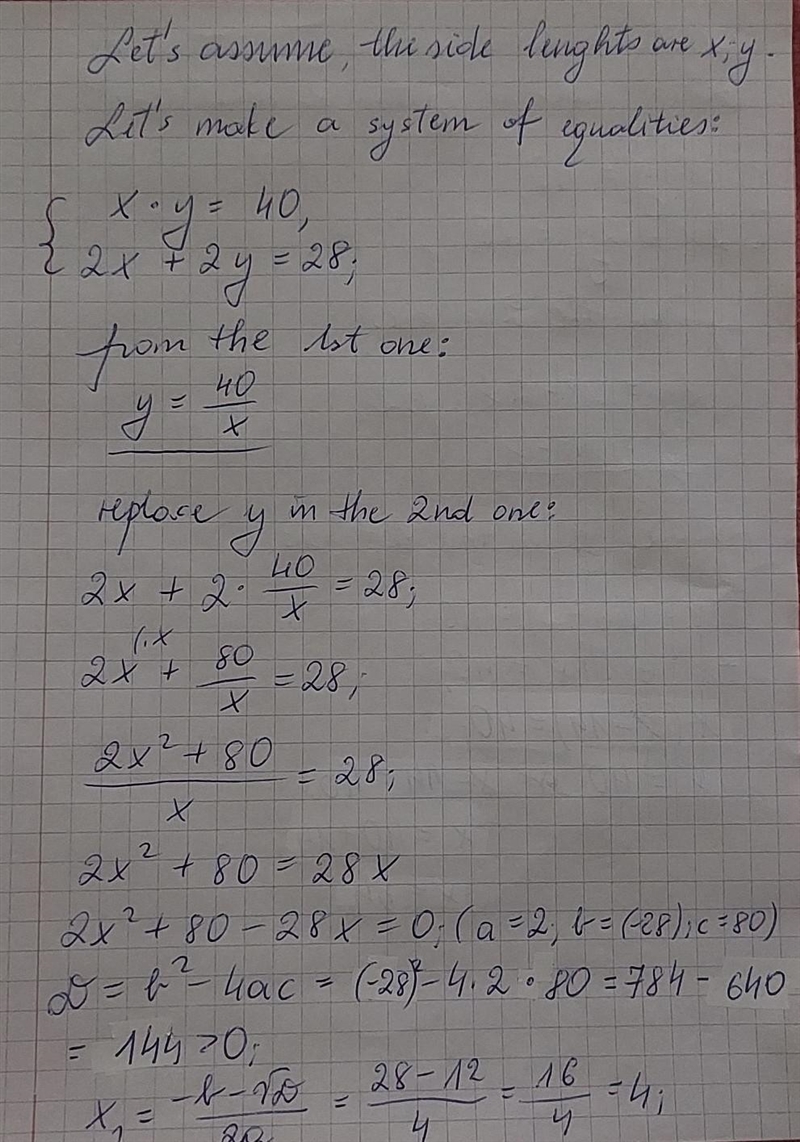 Let's assume, the side lenghts are x; y.
Let's make a system of equalities:
{ x · y = 40,
2x + 2y = 28;
from the 1st one:
y = 40/x
replace y in the 2nd one:
2x + 2 · 40/x = 28;
2x^(·x + 80/x = 28;
(2x² + 80)/x = 28;
2x² + 80 = 28x
2x² + 80 - 28x = 0; (a = 2; b = (-28); c = 80)
D = b² - 4ac = (-28)² - 4 · 2 · 80 = 784 - 640
= 144 > 0;
x₁ = (-b - √D)/2a = (28 - 12)/4 = 16/4 = 4;